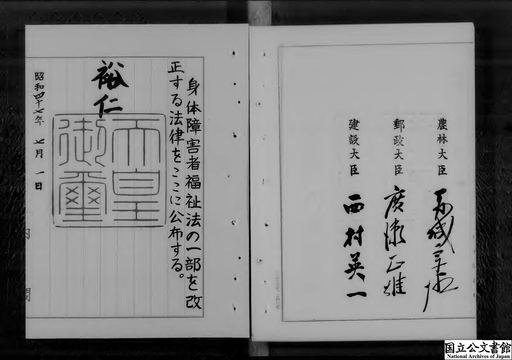 農林大臣 赤城宗徳
郵政大臣 廣瀬正雄
建設大臣 西村英一
身体障害者福祉法の一部を改
正する法律をここに公布する。
裕仁
天皇
御璽
昭和四十七年 七月 一日
内閣
国立公文書館
National Archives of Japan